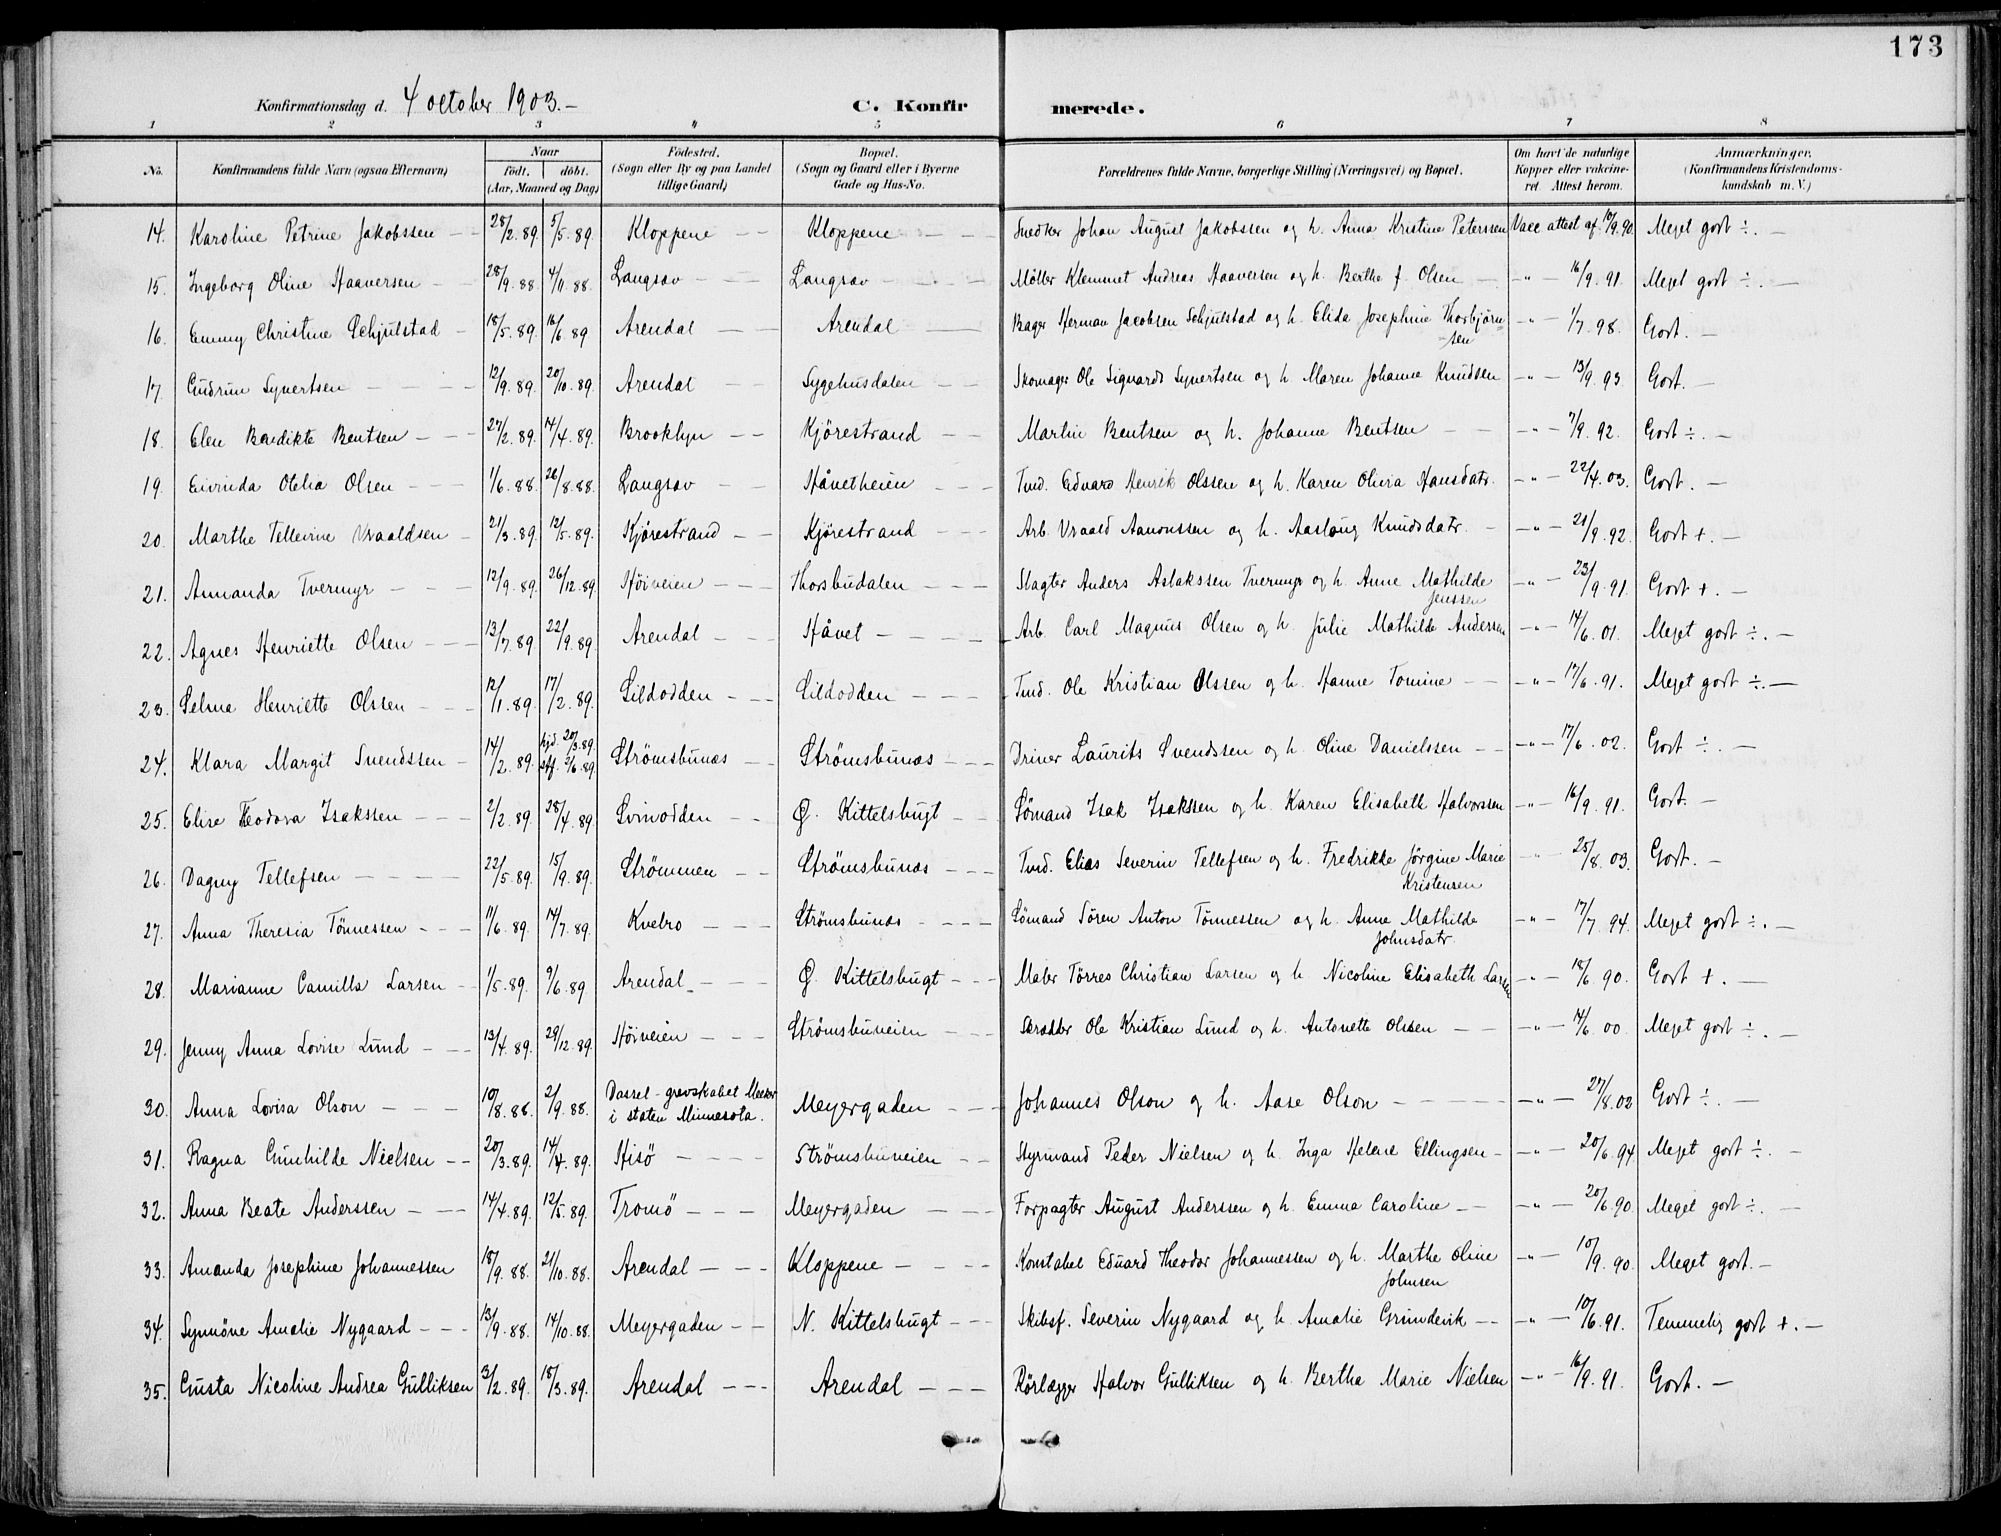 173
Konfirmationsdag d. 4 october 1903.- C. Konfirmerede.
1 2 3 4 5 6 7 8
No. Konfirmandens fulde Navn (ogsaa Efternavn) Naar født. døbt. (Aar, Maaned og Dag) Fødested. (Sogn eller By og paa Landet tillige Gaard) Bopæl. (Sogn og Gaard eller i Byerne Gade og Hus-No. Forældrenes fulde Navne, borgerlige Stilling (Næringsvei) og Bopæl. Om havt de naturlige Kopper eller vakcineret. Attest herom. Anmærkninger. (Konfirmandens Kristendomskundskab m. V.)
14. Karoline Petrine Jakobssen — 28/2.89. 5/5.89. Kloppene — Kloppene — Snedker Johan August Jakobssen og h. Anna Kristine Peterssen Vacc attest af 10/9.90. Meget godt ÷. —
15. Ingeborg Oline Haaversen — 28/9.88. 4/11.88. Langsæv — Langsæv — Møller Klemmet Andreas Haaversen og h. Berthe J. Olsen — " — 16/9.91. Meget godt ÷. —
16. Emmy Christine Schjulstad — 18/5.89. 16/6.89 Arendal — Arendal — Bager Herman Jacobsen Schjulstad og h. Elida Josephine Thorbjørnsen — " — 1/7.98. Godt. —
17. Gudrun Syvertsen — 12/9.89. 20/10.89 Arendal — Sygehusdalen — Skomager Ole Sigvards Syvertsen og h. Maren Johanne Knudsen — " — 13/9.93. Godt. —
18. Elen Bendikte Bentsen — 27/2.89. 14/4.89. Brooklyn — Kjørestrand — Martin Bentsen og h. Johanne Bentsen — " — 7/9.92. Godt ÷. —
19. Eivinda Otelia Olsen — 1/6.88. 26/8.88. Langsæv — Håvetheien — Tmd. Edvard Henrik Olssen og h. Karen Olivia Hansdatr. — " — 22/4.03. Godt. —
20. Marthe Tellevine Vraaldsen — 21/3.89. 12/5.89. Kjørestrand — Kjørestrand — Arb. Vraald Aanonssen og h. Aaslaug Knudsdatr. — " — 21/9.92. Godt +. —
21. Amanda Tvermyr — 12/9.89. 26/12.89. Høiveien — Thorsbudalen — Slagter Anders Aslakssen Tvermyr og h. Anne Mathilde Jenssen — " — 23/9.91. Godt +. —
22. Agnes Henriette Olsen — 13/7.89. 22/9.89. Arendal — Håvet — Arb. Carl Magnus Olsen og h. Julie Mathilde Andersen — " — 14/6.01. Meget godt ÷. —
23. Selma Henriette Olssen — 12/1.89. 17/2.89. Sildodden — Sildodden — Tmd. Ole Kristian Olssen og h. Hanne Tomine — " — 17/6.91. Meget godt ÷. —
24. Klara Margit Svendssen — 14/2.89. hjd. 20/3.89. stf. 2/6.89. Strømsbunæs — Strømsbunæs — Driver Laurits Svendssen og h. Oline Danielssen — " — 17/6.02. Godt ÷. —
25. Elise Theodora Isakssen — 2/2.89. 28/4.89. Svinodden — Ø. Kittelsbugt — Sømand Isak Isakssen og h. Karen Elisabeth Halvorssen — " — 16/9.91. Godt. —
26. Dagny Tellefsen — 22/5.89. 15/9.89. Strømmen — Strømsbunæs — Tmd. Elias Severin Tellefsen og h. Fredrikke Jørgine Marie Kristensen — " — 25/8.03. Godt. —
27. Anna Theresia Tønnessen — 11/6.89. 14/7.89. Kvebro — Strømsbunæs — Sømand Søren Anton Tønnessen og h. Anne Mathilde Johnsdatr. — " — 17/7.94. Meget godt ÷. —
28. Marianne Camilla Larsen — 1/5.89. 9/6.89 Arendal — Ø. Kittelsbugt — Maler Tørres Christian Larsen og h. Nicoline Elisabeth Larsen — " — 18/6.90. Godt +. —
29. Jenny Anna Lovise Lund — 13/4.89. 29/12.89. Høiveien — Strømsbuveien — Skrædder Ole Kristian Lund og h. Antonette Olssen — " — 14/6.00. Meget godt ÷. —
30. Anna Lovisa Olson — 10/8.88. 2/9.88. Dassel - grevskabet Meeker i staten Minnesota. Meyergaden — Johannes Olson og h. Aase Olson — " — 27/8.02 Godt ÷. —
31. Ragna Gunhilde Nielsen — 20/3.89. 14/4.89. Hisö — Strømsbuveien — Styrmand Peder Nielsen og h. Inga Helene Ellingsen — " — 20/6.94 Meget godt ÷. —
32. Anna Beate Anderssen — 14/4.89. 12/5.89. Tromö — Meyergaden — Forpagter August Anderssen og h. Emma Caroline — " — 20/6.90. Meget godt ÷. —
33. Amanda Josephine Johannessen 18/9.88. 21/10.88. Arendal — Kloppene — Konstabel Eduard Theodor Johannessen og h. Marthe Oline Johnsen — " — 10/9.90. Meget godt. —
34. Synnöve Amalie Nygaard — 13/9.88. 14/10.88. Meyergaden — N. Kittelsbugt — Skibsf. Severin Nygaard og h. Amalie Grundevik — " — 10/6.91. Temmelig godt +. —
35. Gusta Nicoline Andrea Gulliksen 3/2.89. 18/3.89. Arendal — Arendal — Rørlægger Halvor Gulliksen og h. Bertha Marie Nielsen — " — 16/9.91. Godt. —